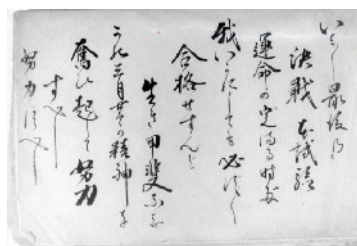 いざ最後の
決戦 本試験
運命の定まる時ぞ
我いかにしても必ず
合格せずんば
生き甲斐なし
この三月 の精神を
奮ひ起して努力
すべし
努力すべし